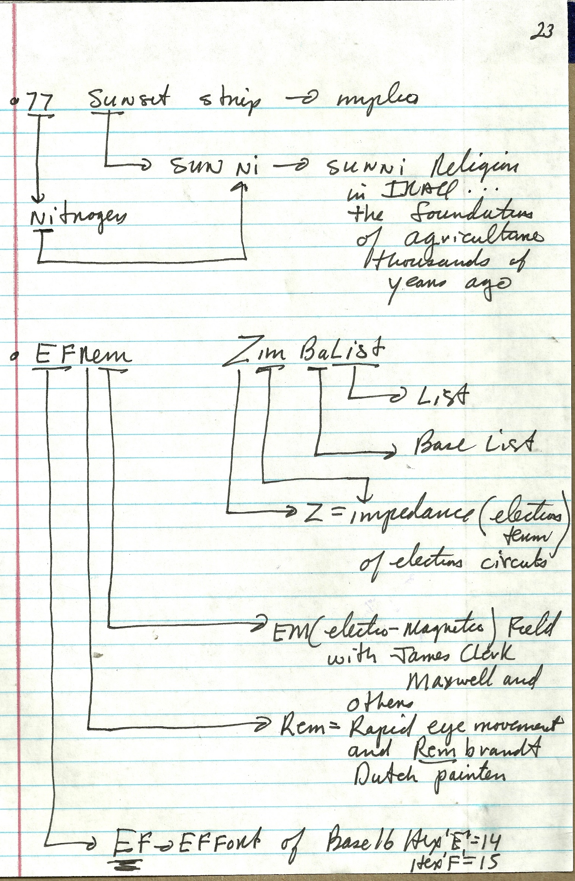 23
• 77 Sunset strip → implies
SUN Ni → SUNNi Religion
in IRAQ...
Nitrogen
the foundations
of agriculture
thousands of
years ago
• EFRem Zim BaList
List
Base List
Z = impedance (electronics
term)
of electronics circuits
EM (electro-Magnetic) Field
with James Clerk
Maxwell and
others
Rem = Rapid eye movement
and Rembrandt
Dutch painter
EF → EFFort of Base 16 Hex'E'=14
Hex'F'=15